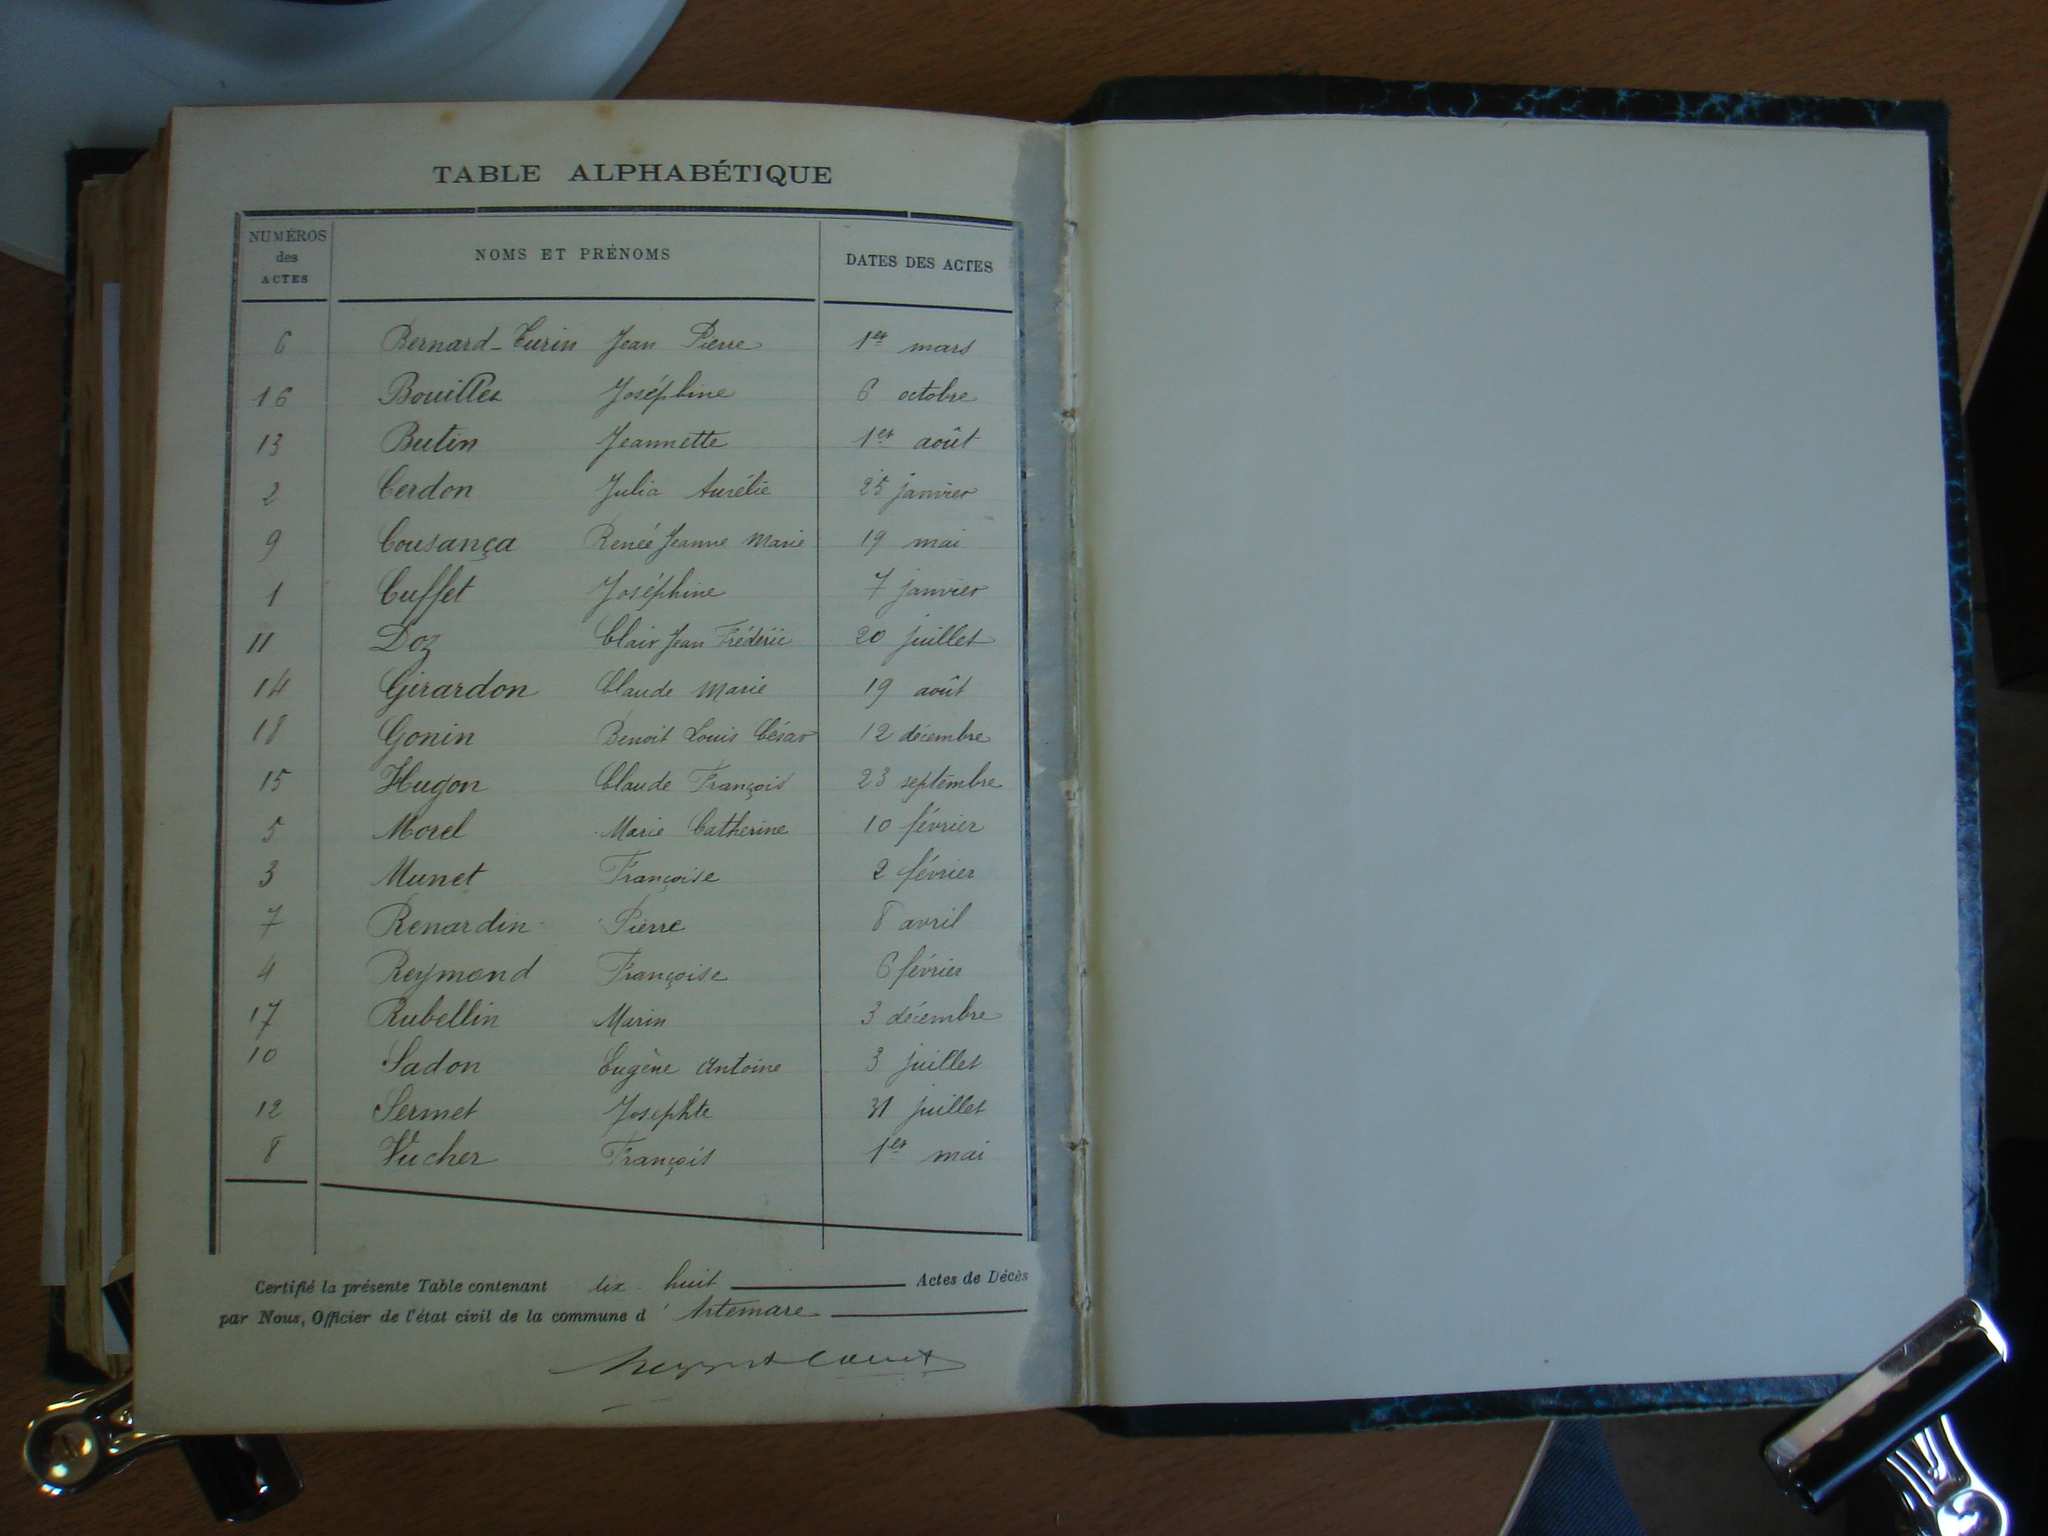 TABLE ALPHABÉTIQUE
NUMÉROS des ACTES NOMS ET PRÉNOMS DATES DES ACTES
6 Bernard-Turin Jean Pierre 1er mars
16 Bouillet Joséphine 6 octobre
13 Butin Jeannette 1er août
2 Cerdon Julia Aurélie 25 janvier
9 Cousança Renée Jeanne Marie 19 mai
1 Cuffet Joséphine 7 janvier
11 Doz Clair Jean Frédéric 20 juillet
14 Girardon Claude Marie 19 août
18 Gonin Benoit Louis César 12 décembre
15 Hugon Claude François 23 septembre
5 Morel Marie Catherine 10 février
3 Munet Françoise 2 février
7 Renardin Pierre 8 avril
4 Reymond Françoise 6 février
17 Rubellin Marin 3 décembre
10 Sadon Eugène Antoine 3 juillet
12 Sermet Josephte 31 juillet
8 Vucher François 1er mai
Certifié la présente Table contenant dix-huit Actes de Décès
par Nous, Officier de l'état civil de la commune d'Artemare